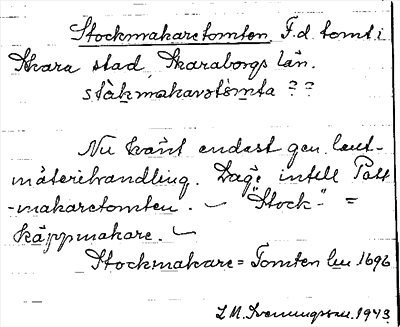 Stockmakaretomten, F.d. tomt i
Skara stad, Skaraborgs län.
stàkmakarətòmta ??
Nu känt endast gen. lant-
mäterihandling. Låg intill Pott
-makaretomten. – "Stock" =
käppmakare. –
Stockmakare = Tomten lm 1696
1943